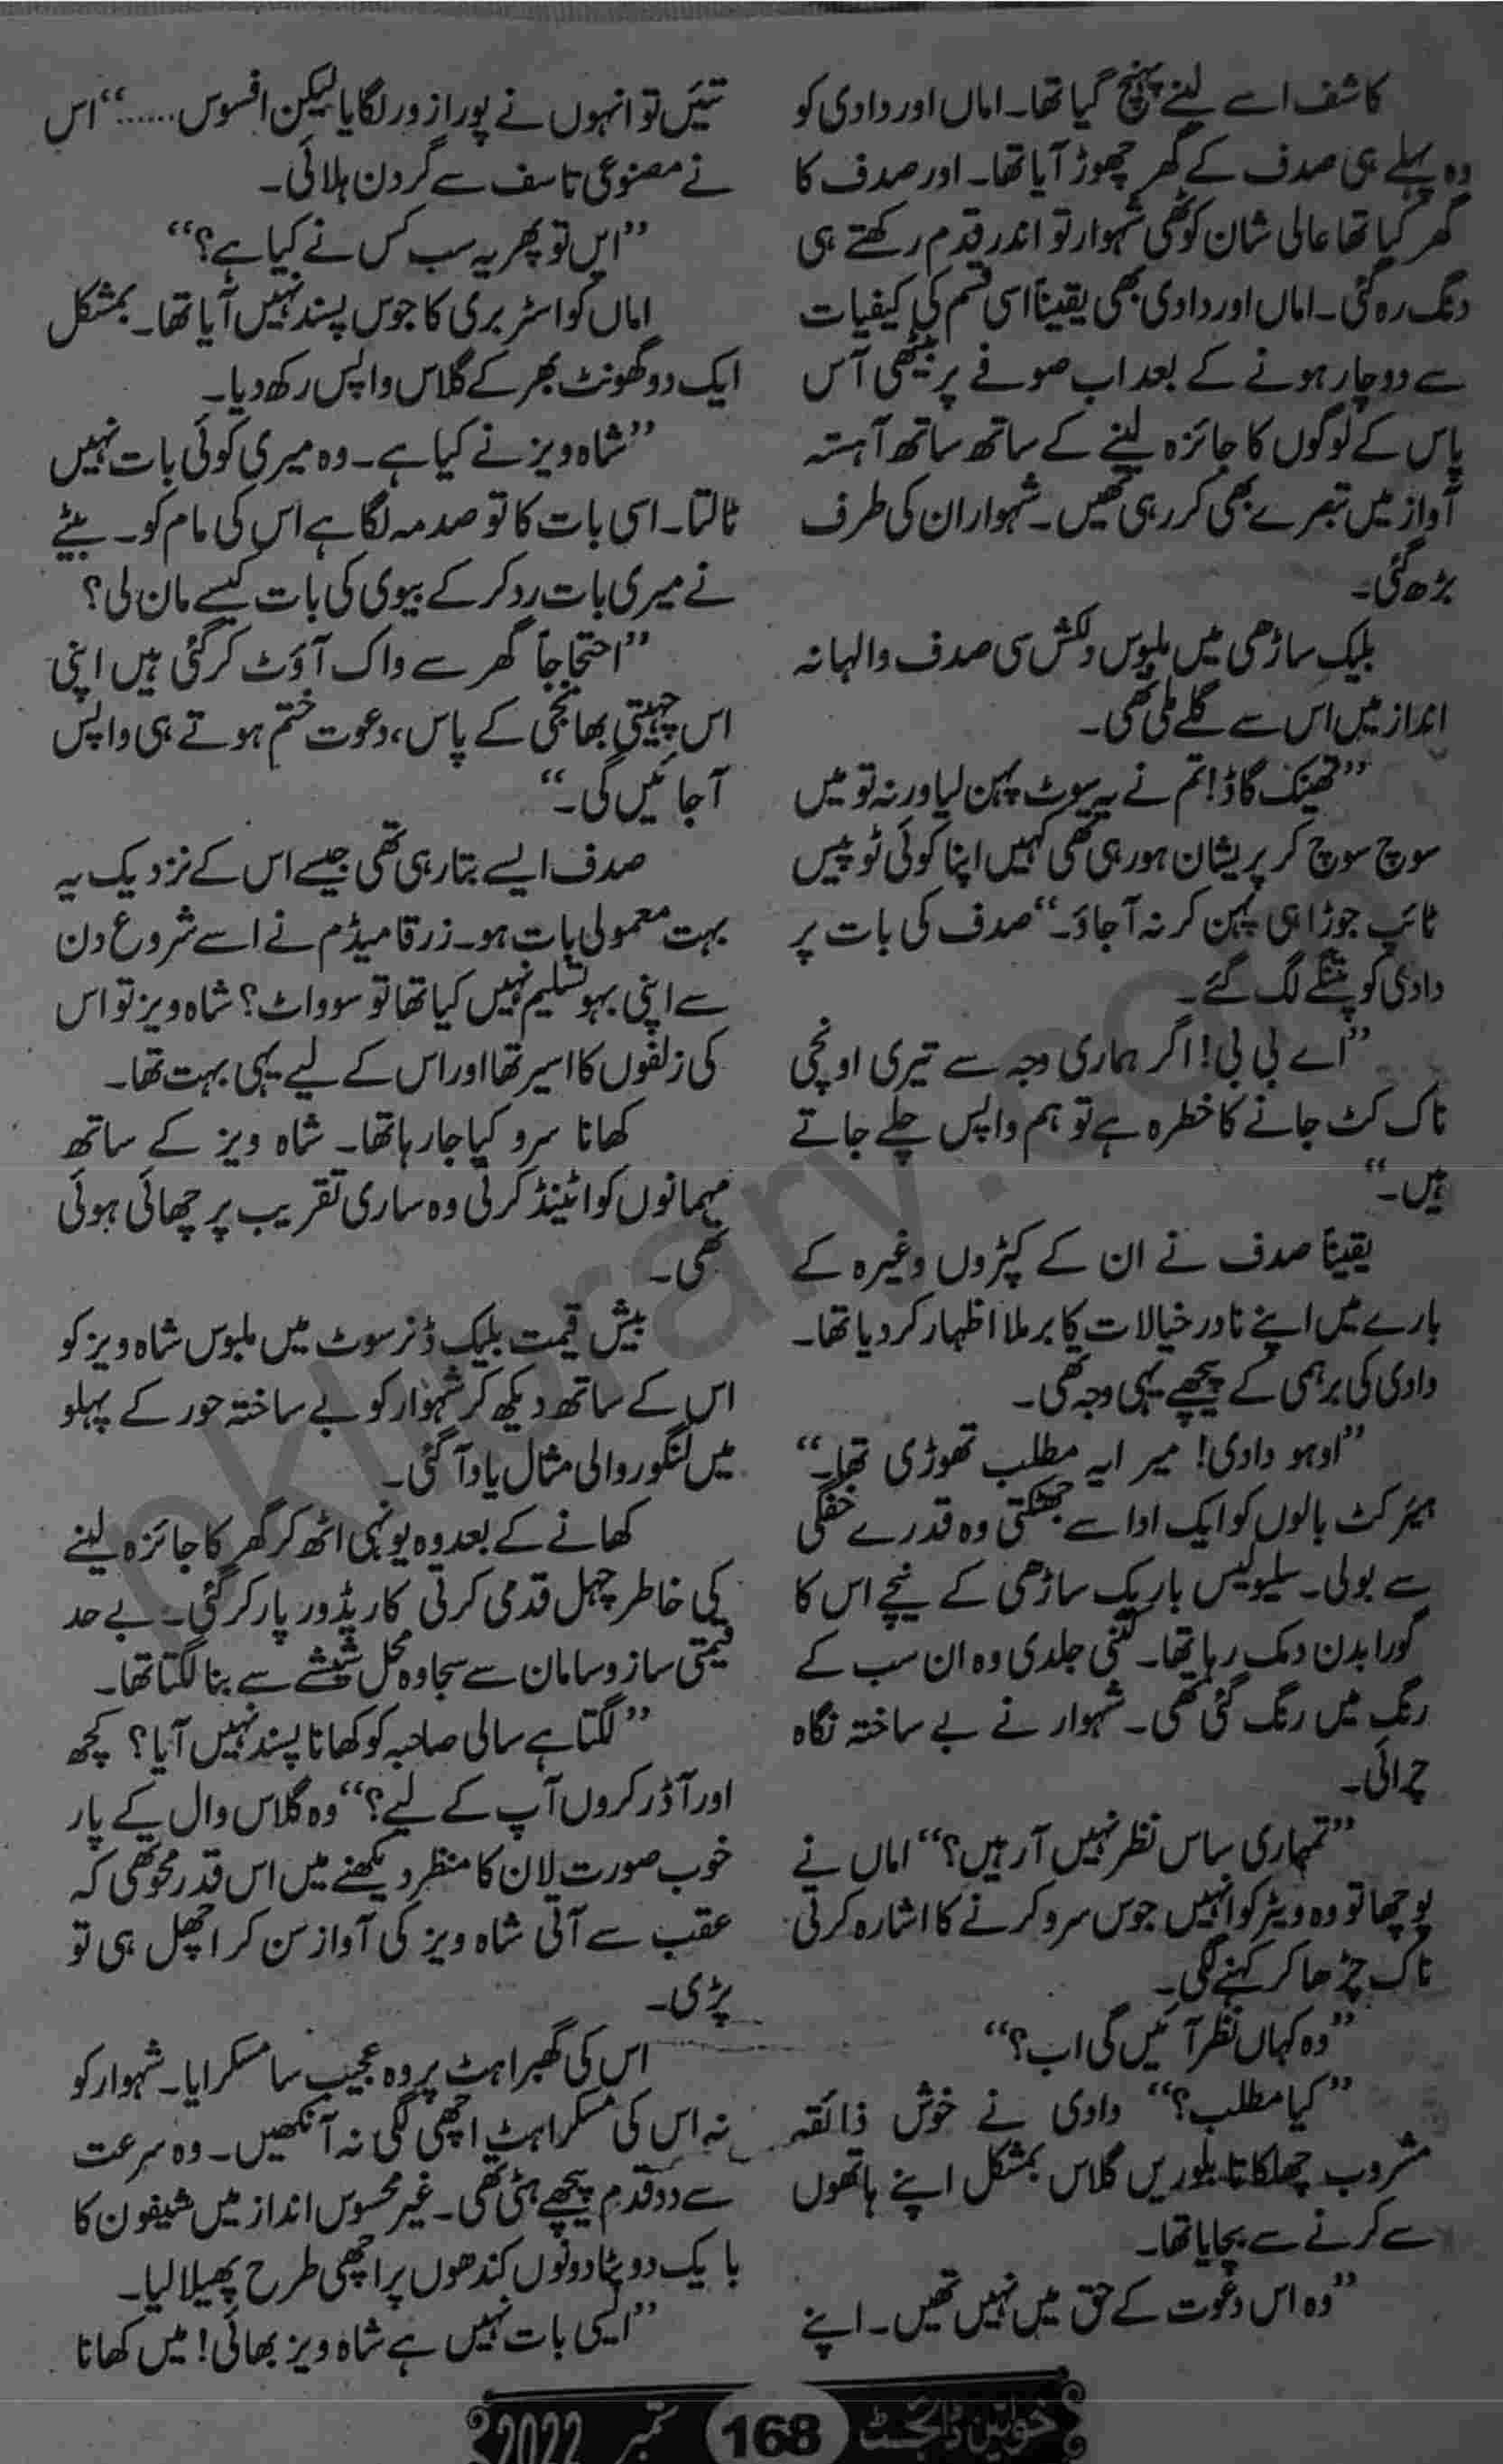 کاشف اسے لینے پہنچ گیا تھا۔ اماں اور دادی کو
وہ پہلے ہی صدف کے گھر چھوڑ آیا تھا۔ اور صدف کا
گھر کیا تھا عالی شان کوٹھی شہوار تو اندر قدم رکھتے ہی
دنگ رہ گئی۔ اماں اور دادی بھی یقیناً اسی قسم کی کیفیات
سے دوچار ہونے کے بعد اب صوفے پر بیٹھی آس
پاس کے لوگوں کا جائزہ لینے کے ساتھ ساتھ آہستہ
آواز میں تبصرے بھی کر رہی تھیں۔ شہوار ان کی طرف
بڑھ گئی۔
بلیک ساڑھی میں ملبوس دلکش سی صدف والہانہ
انداز میں اس سے گلے ملی تھی۔
”تھینک گاڈ! تم نے یہ سوٹ پہن لیا ورنہ تو میں
سوچ سوچ کر پریشان ہو رہی تھی کہیں اپنا کوئی ٹو پیس
ٹائپ جوڑا ہی پہن کر نہ آجاؤ۔“ صدف کی بات پر
دادی کو پتنگے لگ گئے۔
”اے بی بی! اگر ہماری وجہ سے تیری اونچی
ناک کٹ جانے کا خطرہ ہے تو ہم واپس چلے جاتے
ہیں۔“
یقیناً صدف نے ان کے کپڑوں وغیرہ کے
بارے میں اپنے نادر خیالات کا برملا اظہار کر دیا تھا۔
دادی کی برہمی کے پیچھے یہی وجہ تھی۔
”اوہو دادی! میرا یہ مطلب تھوڑی تھا۔“
ہیئر کٹ بالوں کو ایک ادا سے جھٹکتی وہ قدرے خفگی
سے بولی۔ سلیولیس باریک ساڑھی کے نیچے اس کا
گورا بدن دمک رہا تھا۔ کتنی جلدی وہ ان سب کے
رنگ میں رنگ گئی تھی۔ شہوار نے بے ساختہ نگاہ
چرائی۔
”تمہاری ساس نظر نہیں آرہیں؟“ اماں نے
پوچھا تو وہ ویٹر کو انہیں جوس سرو کرنے کا اشارہ کرتی
ناک چڑھا کر کہنے لگی۔
”وہ کہاں نظر آئیں گی اب؟“
”کیا مطلب؟“ دادی نے خوش ذائقہ
مشروب چھلکاتا بلوریں گلاس بمشکل اپنے ہاتھوں
سے گرنے سے بچایا تھا۔
”وہ اس دعوت کے حق میں نہیں تھیں۔ اپنے
تئیں تو انہوں نے پورا زور لگایا لیکن افسوس......“ اس
نے مصنوعی تاسف سے گردن ہلائی۔
”ایں تو پھر یہ سب کس نے کیا ہے؟“
اماں کو اسٹربری کا جوس پسند نہیں آیا تھا۔ بمشکل
ایک دو گھونٹ بھر کے گلاس واپس رکھ دیا۔
”شاہ ویز نے کیا ہے۔ وہ میری کوئی بات نہیں
ٹالتا۔ اسی بات کا تو صدمہ لگا ہے اس کی مام کو۔ بیٹے
نے میری بات رد کر کے بیوی کی بات کیسے مان لی؟
”احتجاجاً گھر سے واک آؤٹ کر گئی ہیں اپنی
اس چہیتی بھانجی کے پاس، دعوت ختم ہوتے ہی واپس
آجائیں گی۔“
صدف ایسے بتا رہی تھی جیسے اس کے نزدیک یہ
بہت معمولی بات ہو۔ زرقا میڈم نے اسے شروع دن
سے اپنی بہو تسلیم نہیں کیا تھا تو سو واٹ؟ شاہ ویز تو اس
کی زلفوں کا اسیر تھا اور اس کے لیے یہی بہت تھا۔
کھانا سرو کیا جا رہا تھا۔ شاہ ویز کے ساتھ
مہمانوں کو اٹینڈ کرتی وہ ساری تقریب پر چھائی ہوئی
تھی۔
بیش قیمت بلیک ڈنر سوٹ میں ملبوس شاہ ویز کو
اس کے ساتھ دیکھ کر شہوار کو بے ساختہ حور کے پہلو
میں لنگور والی مثال یاد آگئی۔
کھانے کے بعد وہ یونہی اٹھ کر گھر کا جائزہ لینے
کی خاطر چہل قدمی کرتی کاریڈور پار کر گئی۔ بے حد
قیمتی ساز و سامان سے سجا وہ محل شیشے سے بنا لگتا تھا۔
”لگتا ہے سالی صاحبہ کو کھانا پسند نہیں آیا؟ کچھ
اور آڈر کروں آپ کے لیے؟“ وہ گلاس وال کے پار
خوب صورت لان کا منظر دیکھنے میں اس قدر محو تھی کہ
عقب سے آتی شاہ ویز کی آواز سن کر اچھل ہی تو
پڑی۔
اس کی گھبراہٹ پر وہ عجیب سا مسکرایا۔ شہوار کو
نہ اس کی مسکراہٹ اچھی لگی نہ آنکھیں۔ وہ سرعت
سے دو قدم پیچھے ہٹی تھی۔ غیر محسوس انداز میں شیفون کا
باریک دوپٹا دونوں کندھوں پر اچھی طرح پھیلا لیا۔
”ایسی بات نہیں ہے شاہ ویز بھائی! میں کھانا
خواتین ڈائجسٹ 168 ستمبر 2022
pklibrary.com